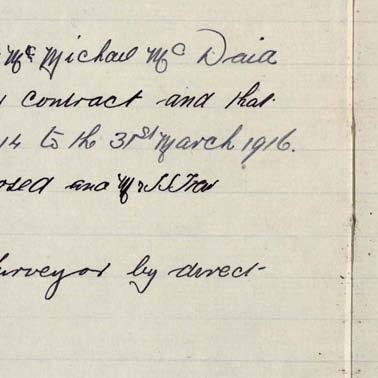 Mr Michael Mc Daid
contract and that
14 to the 31st March 1916.
osed and Mr
urveyor by direct-